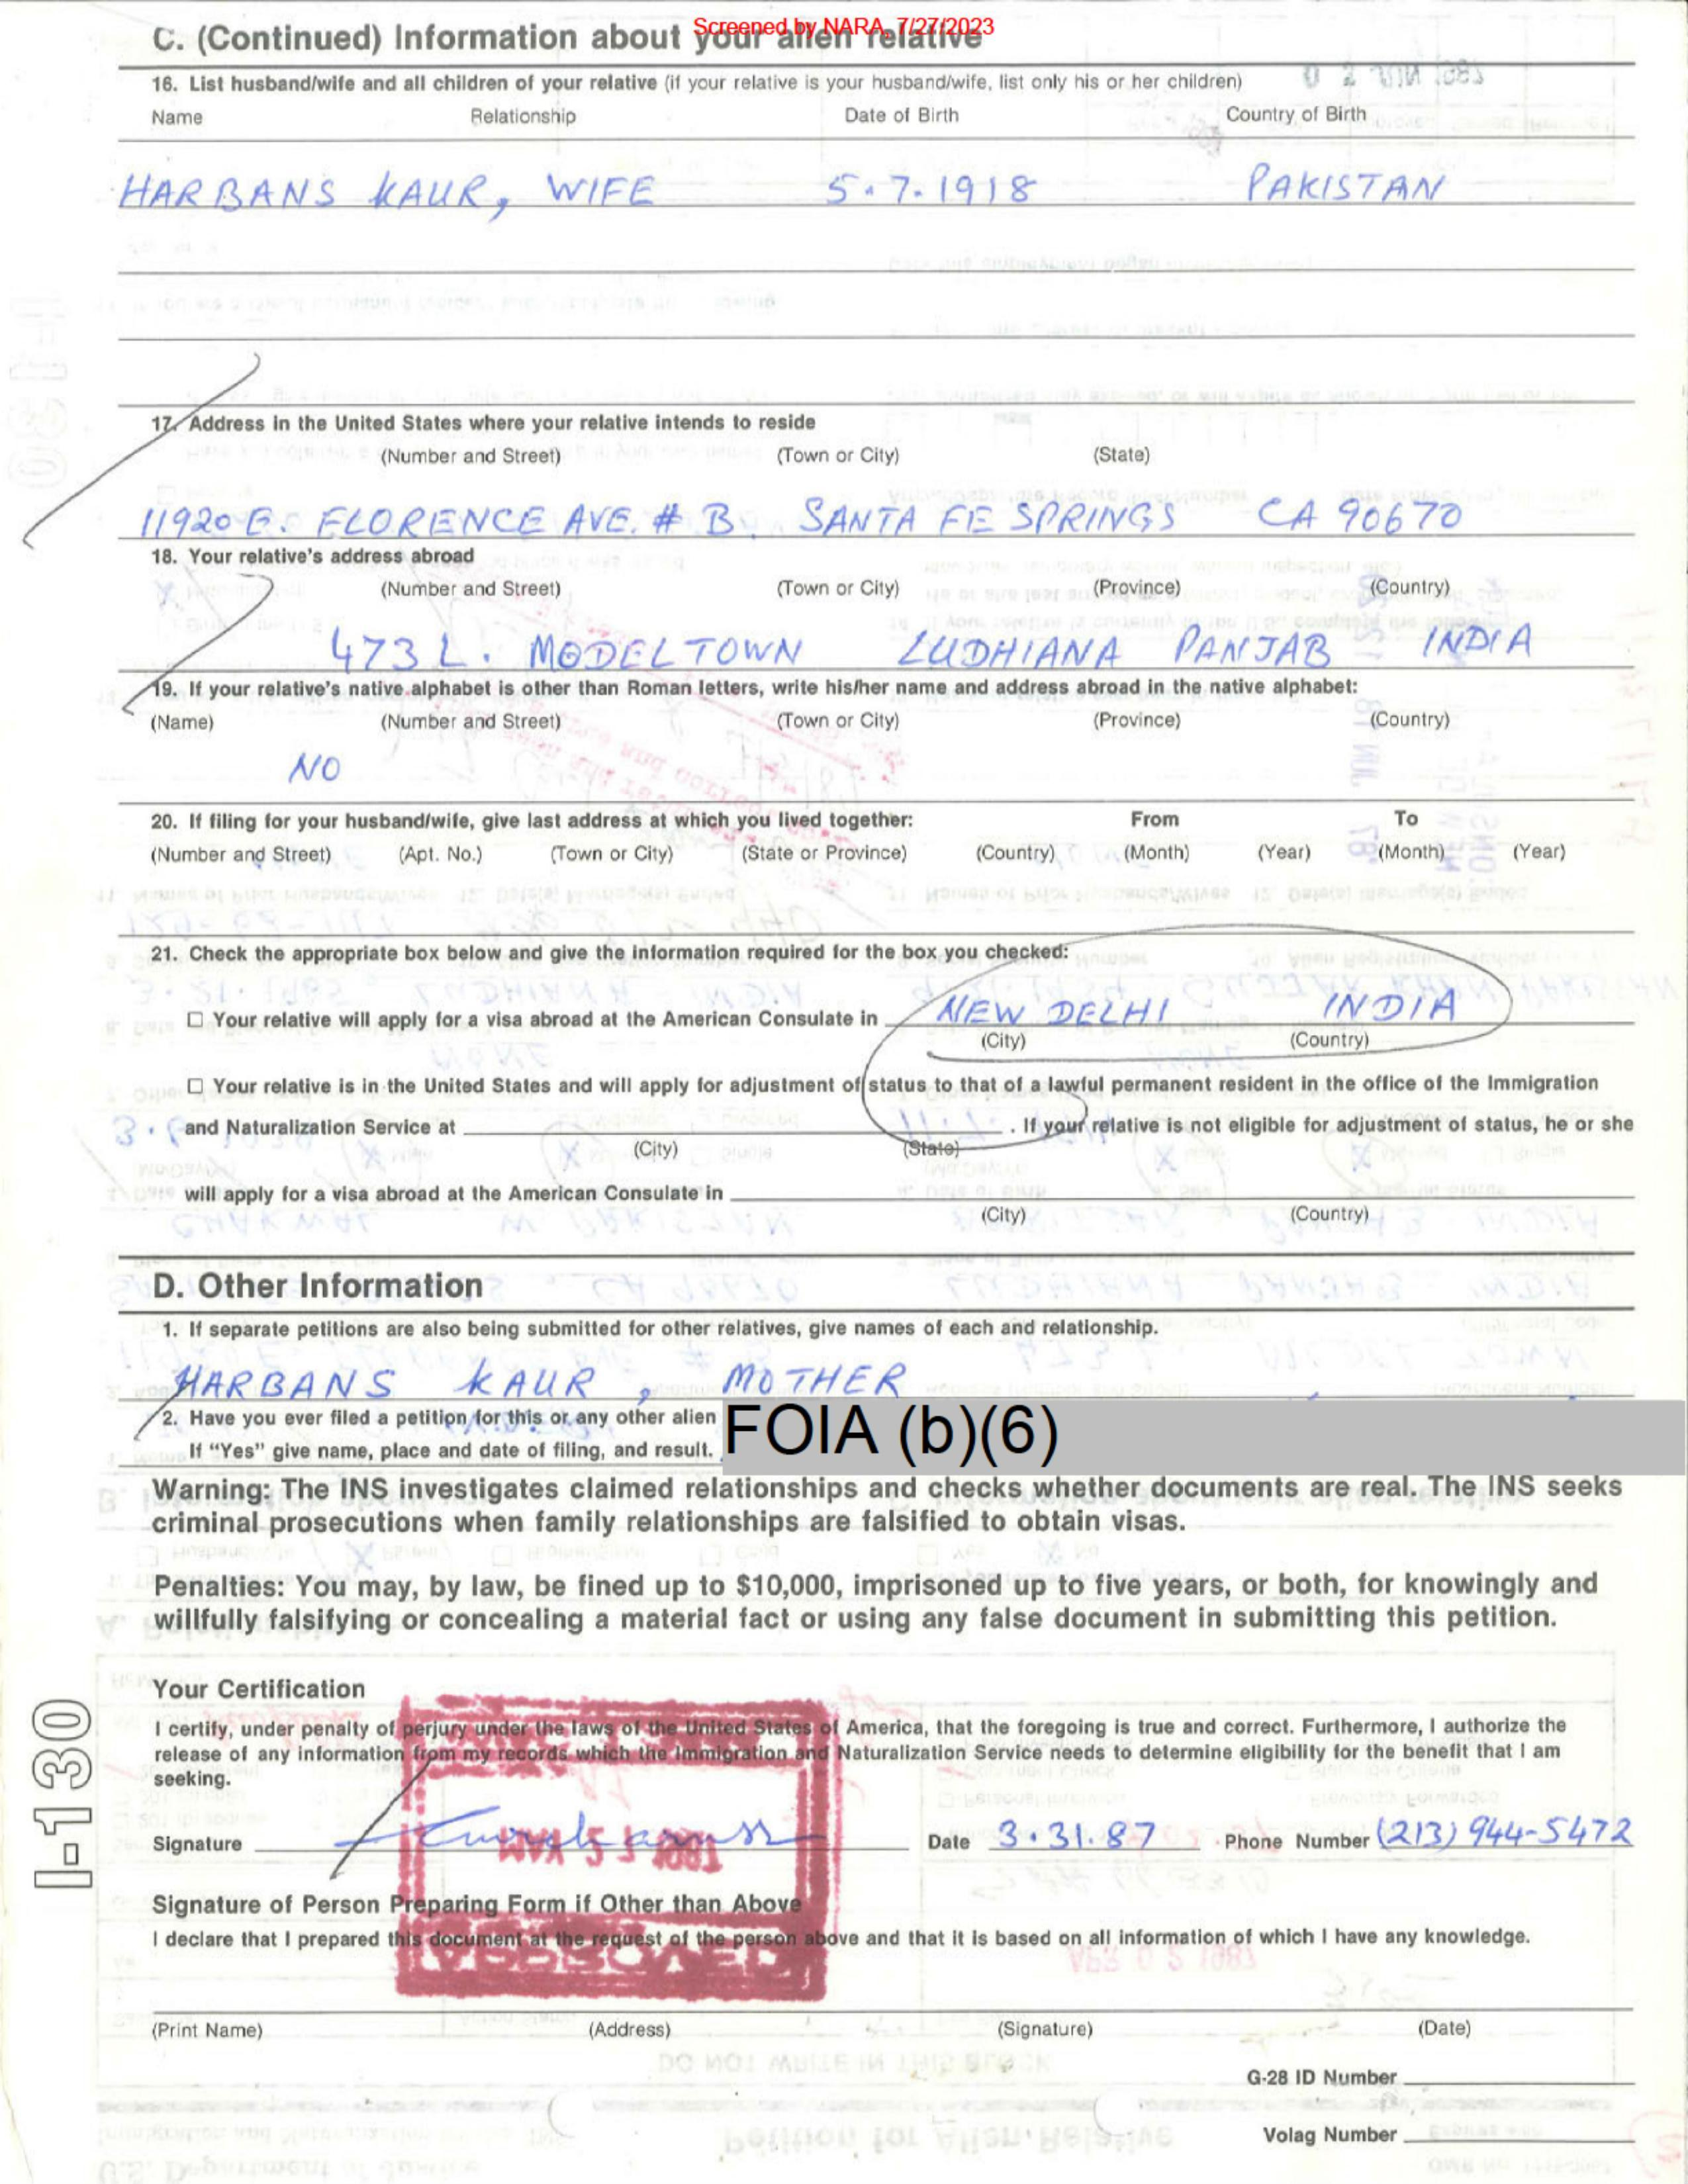 Screened by NARA, 7/27/2023
C. (Continued) Information about your alien relative
16. List husband/wife and all children of your relative (if your relative is your husband/wife, list only his or her children)
Name Relationship Date of Birth Country of Birth
HARBANS KAUR, WIFE 5.7.1918 PAKISTAN
17. Address in the United States where your relative intends to reside
(Number and Street) (Town or City) (State)
11920 E. FLORENCE AVE. # B. SANTA FE SPRINGS CA 90670
18. Your relative's address abroad
(Number and Street) (Town or City) (Province) (Country)
473 L. MODEL TOWN LUDHIANA PANJAB INDIA
19. If your relative's native alphabet is other than Roman letters, write his/her name and address abroad in the native alphabet:
(Name) (Number and Street) (Town or City) (Province) (Country)
NO
20. If filing for your husband/wife, give last address at which you lived together: From To
(Number and Street) (Apt. No.) (Town or City) (State or Province) (Country) (Month) (Year) (Month) (Year)
21. Check the appropriate box below and give the information required for the box you checked:
☐ Your relative will apply for a visa abroad at the American Consulate in NEW DELHI INDIA
(City) (Country)
☐ Your relative is in the United States and will apply for adjustment of status to that of a lawful permanent resident in the office of the Immigration
and Naturalization Service at . If your relative is not eligible for adjustment of status, he or she
(City) (State)
will apply for a visa abroad at the American Consulate in
(City) (Country)
D. Other Information
1. If separate petitions are also being submitted for other relatives, give names of each and relationship.
HARBANS KAUR, MOTHER
2. Have you ever filed a petition for this or any other alien FOIA (b)(6)
If "Yes" give name, place and date of filing, and result.
Warning: The INS investigates claimed relationships and checks whether documents are real. The INS seeks
criminal prosecutions when family relationships are falsified to obtain visas.
Penalties: You may, by law, be fined up to $10,000, imprisoned up to five years, or both, for knowingly and
willfully falsifying or concealing a material fact or using any false document in submitting this petition.
Your Certification
I certify, under penalty of perjury under the laws of the United States of America, that the foregoing is true and correct. Furthermore, I authorize the
release of any information from my records which the Immigration and Naturalization Service needs to determine eligibility for the benefit that I am
seeking.
Signature Date 3.31.87 Phone Number (213) 944-5472
Signature of Person Preparing Form if Other than Above
I declare that I prepared this document at the request of the person above and that it is based on all information of which I have any knowledge.
APPROVED
(Print Name) (Address) (Signature) (Date)
G-28 ID Number
Volag Number
I-130